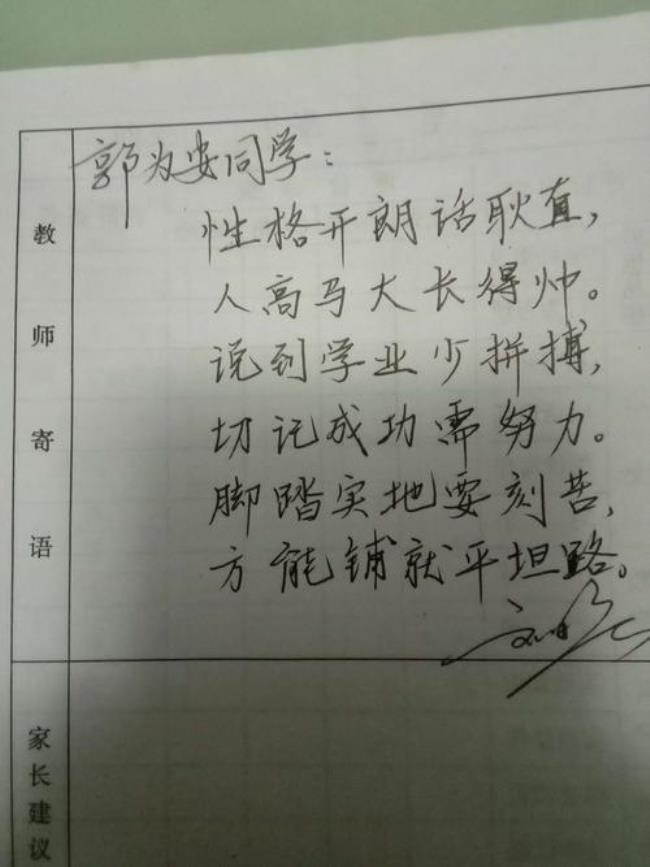 教师寄语
郭为安同学：
性格开朗话耿直，
人高马大长得帅。
说到学业少拼搏，
切记成功需努力。
脚踏实地要刻苦，
方能铺就平坦路。
家长建议